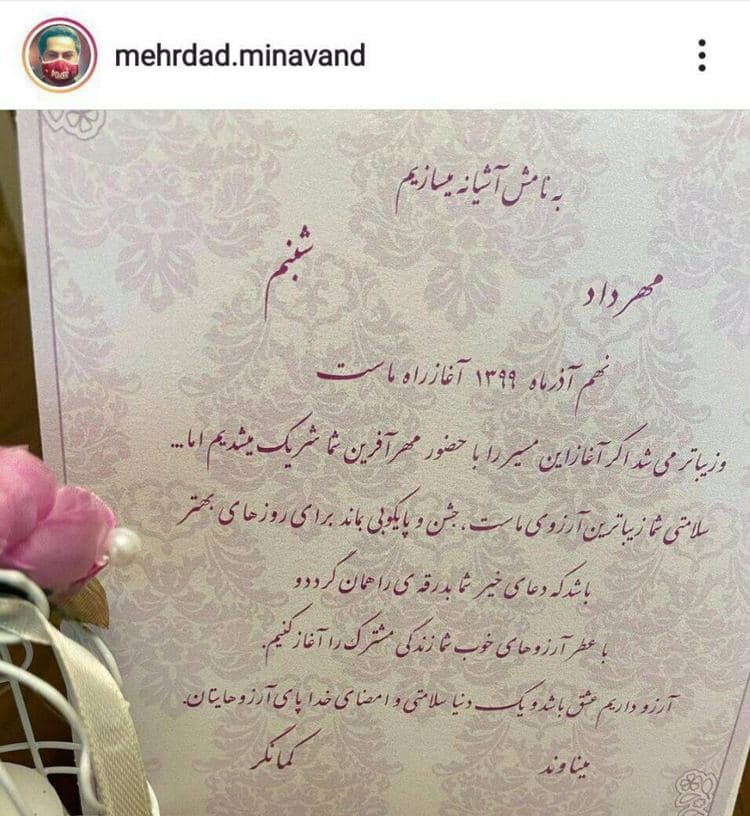 mehrdad.minavand
به نامش آشیانه میسازیم
شبنم
مهرداد
نهم آذر ماه ۱۳۹۹ آغاز راه ماست
و زیباتر می شد اگر آغاز این مسیر را با حضور مهرآفرین شما شریک میشدیم اما...
سلامتی شما زیباترین آرزوی ماست، جشن و پایکوبی بماند برای روزهای بهتر
باشد که دعای خیر شما بدرقه ی راهمان گردد و
با عطر آرزوهای خوب شما زندگی مشترک را آغاز کنیم.
آرزو داریم عشق باشد و یک دنیا سلامتی و امضای خدا پای آرزوهایتان.
میناوند
کمانگر